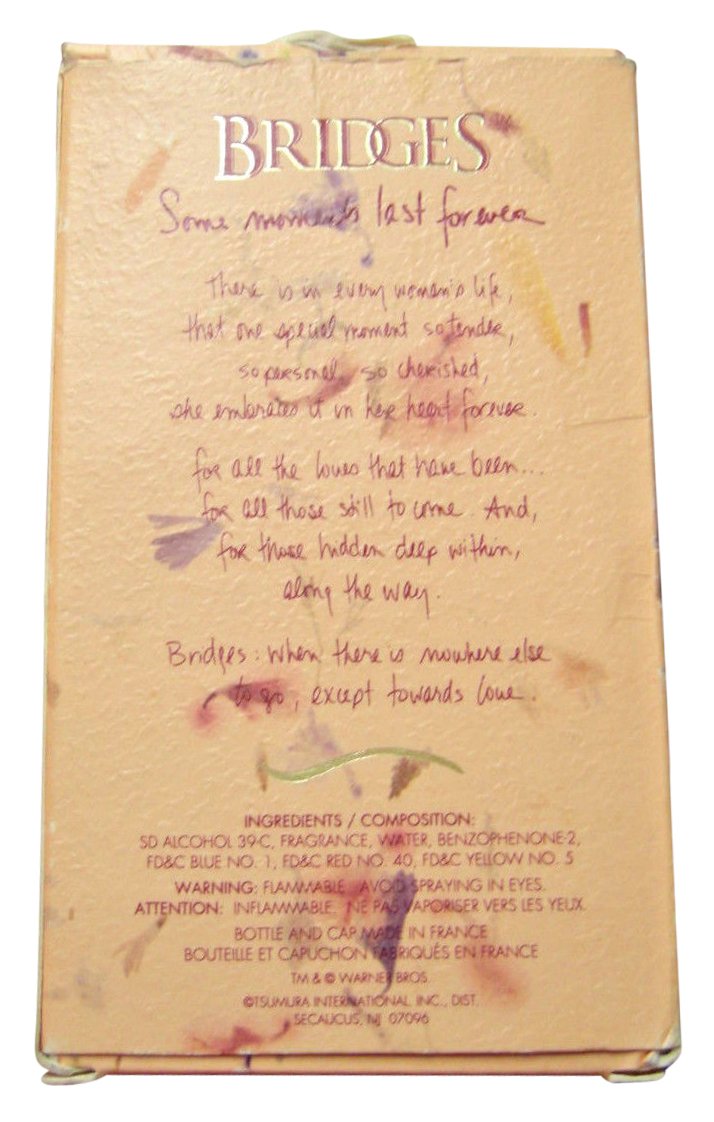 BRIDGES™
Some moments last forever
There is in every woman's life,
that one special moment so tender,
so personal, so cherished,
she embraces it in her heart forever.
for all the loves that have been...
for all those still to come. And,
for those hidden deep within,
along the way.
Bridges: When there is nowhere else
to go, except towards love.
INGREDIENTS / COMPOSITION:
SD ALCOHOL 39-C, FRAGRANCE, WATER, BENZOPHENONE-2,
FD&C BLUE NO. 1, FD&C RED NO. 40, FD&C YELLOW NO. 5
WARNING: FLAMMABLE. AVOID SPRAYING IN EYES.
ATTENTION: INFLAMMABLE. NE PAS VAPORISER VERS LES YEUX.
BOTTLE AND CAP MADE IN FRANCE
BOUTEILLE ET CAPUCHON FABRIQUÉS EN FRANCE
TM & © WARNER BROS.
©TSUMURA INTERNATIONAL, INC., DIST.
SECAUCUS, NJ 07096